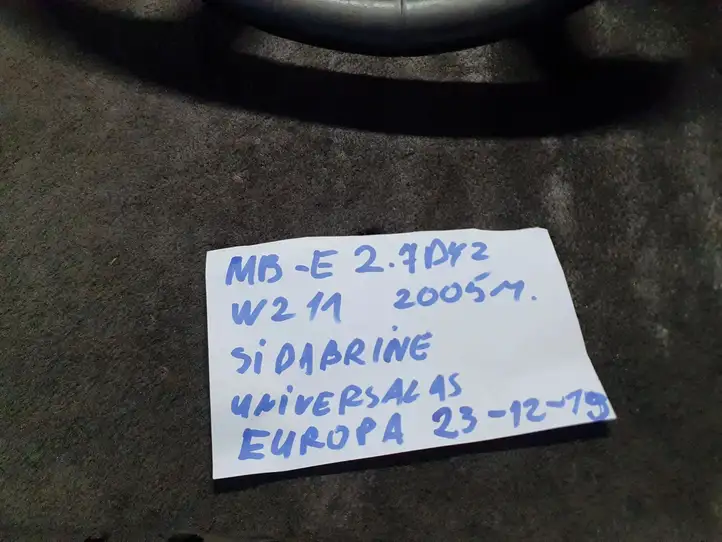 MB-E 2.7DYZ
W211 2005M.
SiDABRINE
UNiVERSALAS
EUROPA 23-12-19